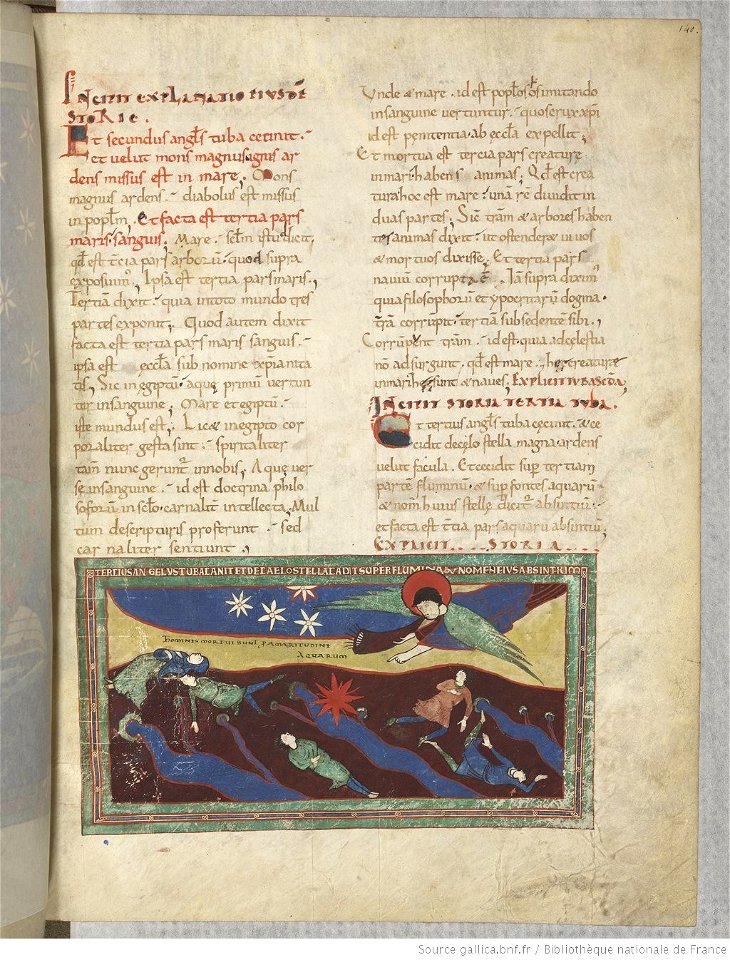 140.
INCIPIT EXPLANATIO EIUSDE
STORIE.
Et secundus angls tuba cecinit.
et velut mons magnus ignis ar
dens missus est in mare, Mons
magnus ardens. diabolus est missus
in poplm, Et facta est tertia pars
maris sanguis, Mare. sclm istu dicit,
qd est tcia pars arborum. quod supra
exposuim, Ipsa est tertia pars maris,
Tertiam dixit. quia in toto mundo tres
partes exponit, Quod autem dixit
facta est tertia pars maris sanguis.
ipsa est eccla sub nomine xpianita
tis, Sic in egiptu aque primum vertun
tur in sanguine, Mare et egiptu.
iste mundus est, Licet in egipto cor
poraliter gesta sint. spiritaliter
tam nunc gerunt in nobis, Aque ver
se in sanguine. id est doctrina philo
soforum in sclo. carnalit intellecta, Mul
tum de scripturis proferunt. sed
carnaliter sentiunt,
Unde & mare. id est poplos. os imitando
in sanguine vertuntur. quos crux xpi
id est penitentia ab eccla expellit,
Et mortua est tercia pars creature
in mari habens animas, Qd est crea
tura hoc est mare. una re dividit in
duas partes, Sic tram & arbores haben
tes animas dixit. ut ostender& vivos
& mortuos dixisse, Et tertia pars
navium corrupta e. Ia supra dixim
quia filosophorum et ypocritarum dogma.
tra corrupit. tertia subsedente sibi,
Corrupent tram. id est quia ad celestia
no adsurgunt. qd est mare, hec creature
in mari sunt & naves, EXPLICIT TUBA SCDA,
INCIPIT STORIA TERTIA TUBA.
Et tertius angls tuba cecinit. & ce
cidit de celo stella magna ardens
velut facula. Et cecidit sup tertiam
parte fluminu & sup fontes aquarum
& nom huius stelle dicit absintiu,
et facta est tcia pars aquarum absintiu,
EXPLICIT STORIA
TERCIUS ANGELUS TUBA CANIT ET DE CAELO STELLA CADIT SUPER FLUMINA & NOMEN EIUS ABSINTHIUM
HOMINES MORTUI SUNT P AMARITUDINE
AQUARUM
Source gallica.bnf.fr / Bibliothèque nationale de France